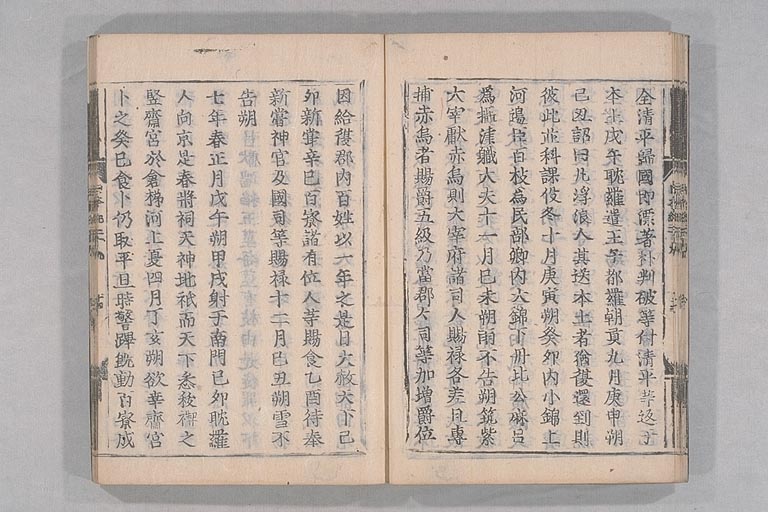 金清平歸國卽漂著朴刺破等付清平等返于
本土戊午耽羅遣王子都羅朝貢九月庚申朔
己丑詔曰凡浮浪人其送本土者猶復還到則
彼此並科課役冬十月庚寅朔癸卯內小錦上
河邊臣百枝爲民部卿內大錦下丹比公麻呂
爲攝津職大夫十一月己未朔雨不告朔筑紫
大宰獻赤烏則大宰府諸司人賜祿各差且專
捕赤烏者賜爵五級乃當郡々司等加增爵位
因給復郡內百姓以一年之是日大赦天下己
卯新甞辛巳百寮諸有位人等賜食乙酉侍奉
新甞神官及國司等賜祿十二月己丑朔雪不
告朔
七年春正月戊午朔甲戌射于南門己卯耽羅
人向京是春將祠天神地祇而天下悉祓禊之
竪齋宮於倉梯河上夏四月丁亥朔欲幸齋宮
卜之癸巳食卜仍取平旦時警蹕既動百寮成